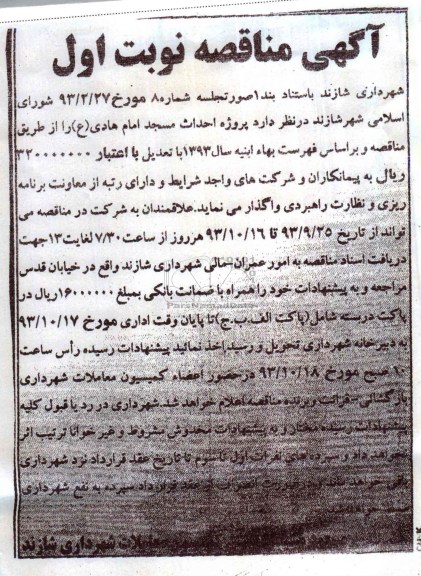 آگهی مناقصه نوبت اول
شهرداری شازند باستناد بند۱صورتجلسه شماره۸ مورخ۹۳/۲/۲۷ شورای
اسلامی شهرشازند درنظر دارد پروژه احداث مسجد امام هادی(ع)را از طریق
مناقصه و براساس فهرست بهاء ابنیه سال۱۳۹۳با تعدیل با اعتبار ۳۲۰۰۰۰۰۰۰۰
ریال به پیمانکاران و شرکت های واجد شرایط و دارای رتبه از معاونت برنامه
ریزی و نظارت راهبردی واگذار می نماید.علاقمندان به شرکت در مناقصه می
تواند از تاریخ ۹۳/۹/۲۵ تا ۹۳/۱۰/۱۶ هرروز از ساعت۷/۳۰ لغایت۱۳جهت
دریافت اسناد مناقصه به امور عمران مالی شهرداری شازند واقع در خیابان قدس
مراجعه و به پیشنهادات خود را همراه با ضمانت بانکی بمبلغ ۱۶۰۰۰۰۰۰۰ریال در
پاکت دربسته شامل(پاکت الف.ب.ج)تا پایان وقت اداری مورخ ۹۳/۱۰/۱۷
به دبیرخانه شهرداری تحویل و رسید اخذ نمائید پیشنهادات رسیده رأس ساعت
۱۰ صبح مورخ ۹۳/۱۰/۱۸ درحضور اعضاء کمیسیون معاملات شهرداری
بازگشائی-قرائت وبرنده مناقصه اعلام خواهد شد.شهرداری در رد یا قبول کلیه
پیشنهادات رسیده مختار و به پیشنهادات مخدوش مشروط و غیر خوانا ترتیب اثر
نخواهد داد و سپرده های نفرات اول تا سوم تا تاریخ عقد قرارداد نزد شهرداری
باقی خواهد ماند عقد قرارداد سپرده به نفع شهرداری
معاملات شهرداری شازند